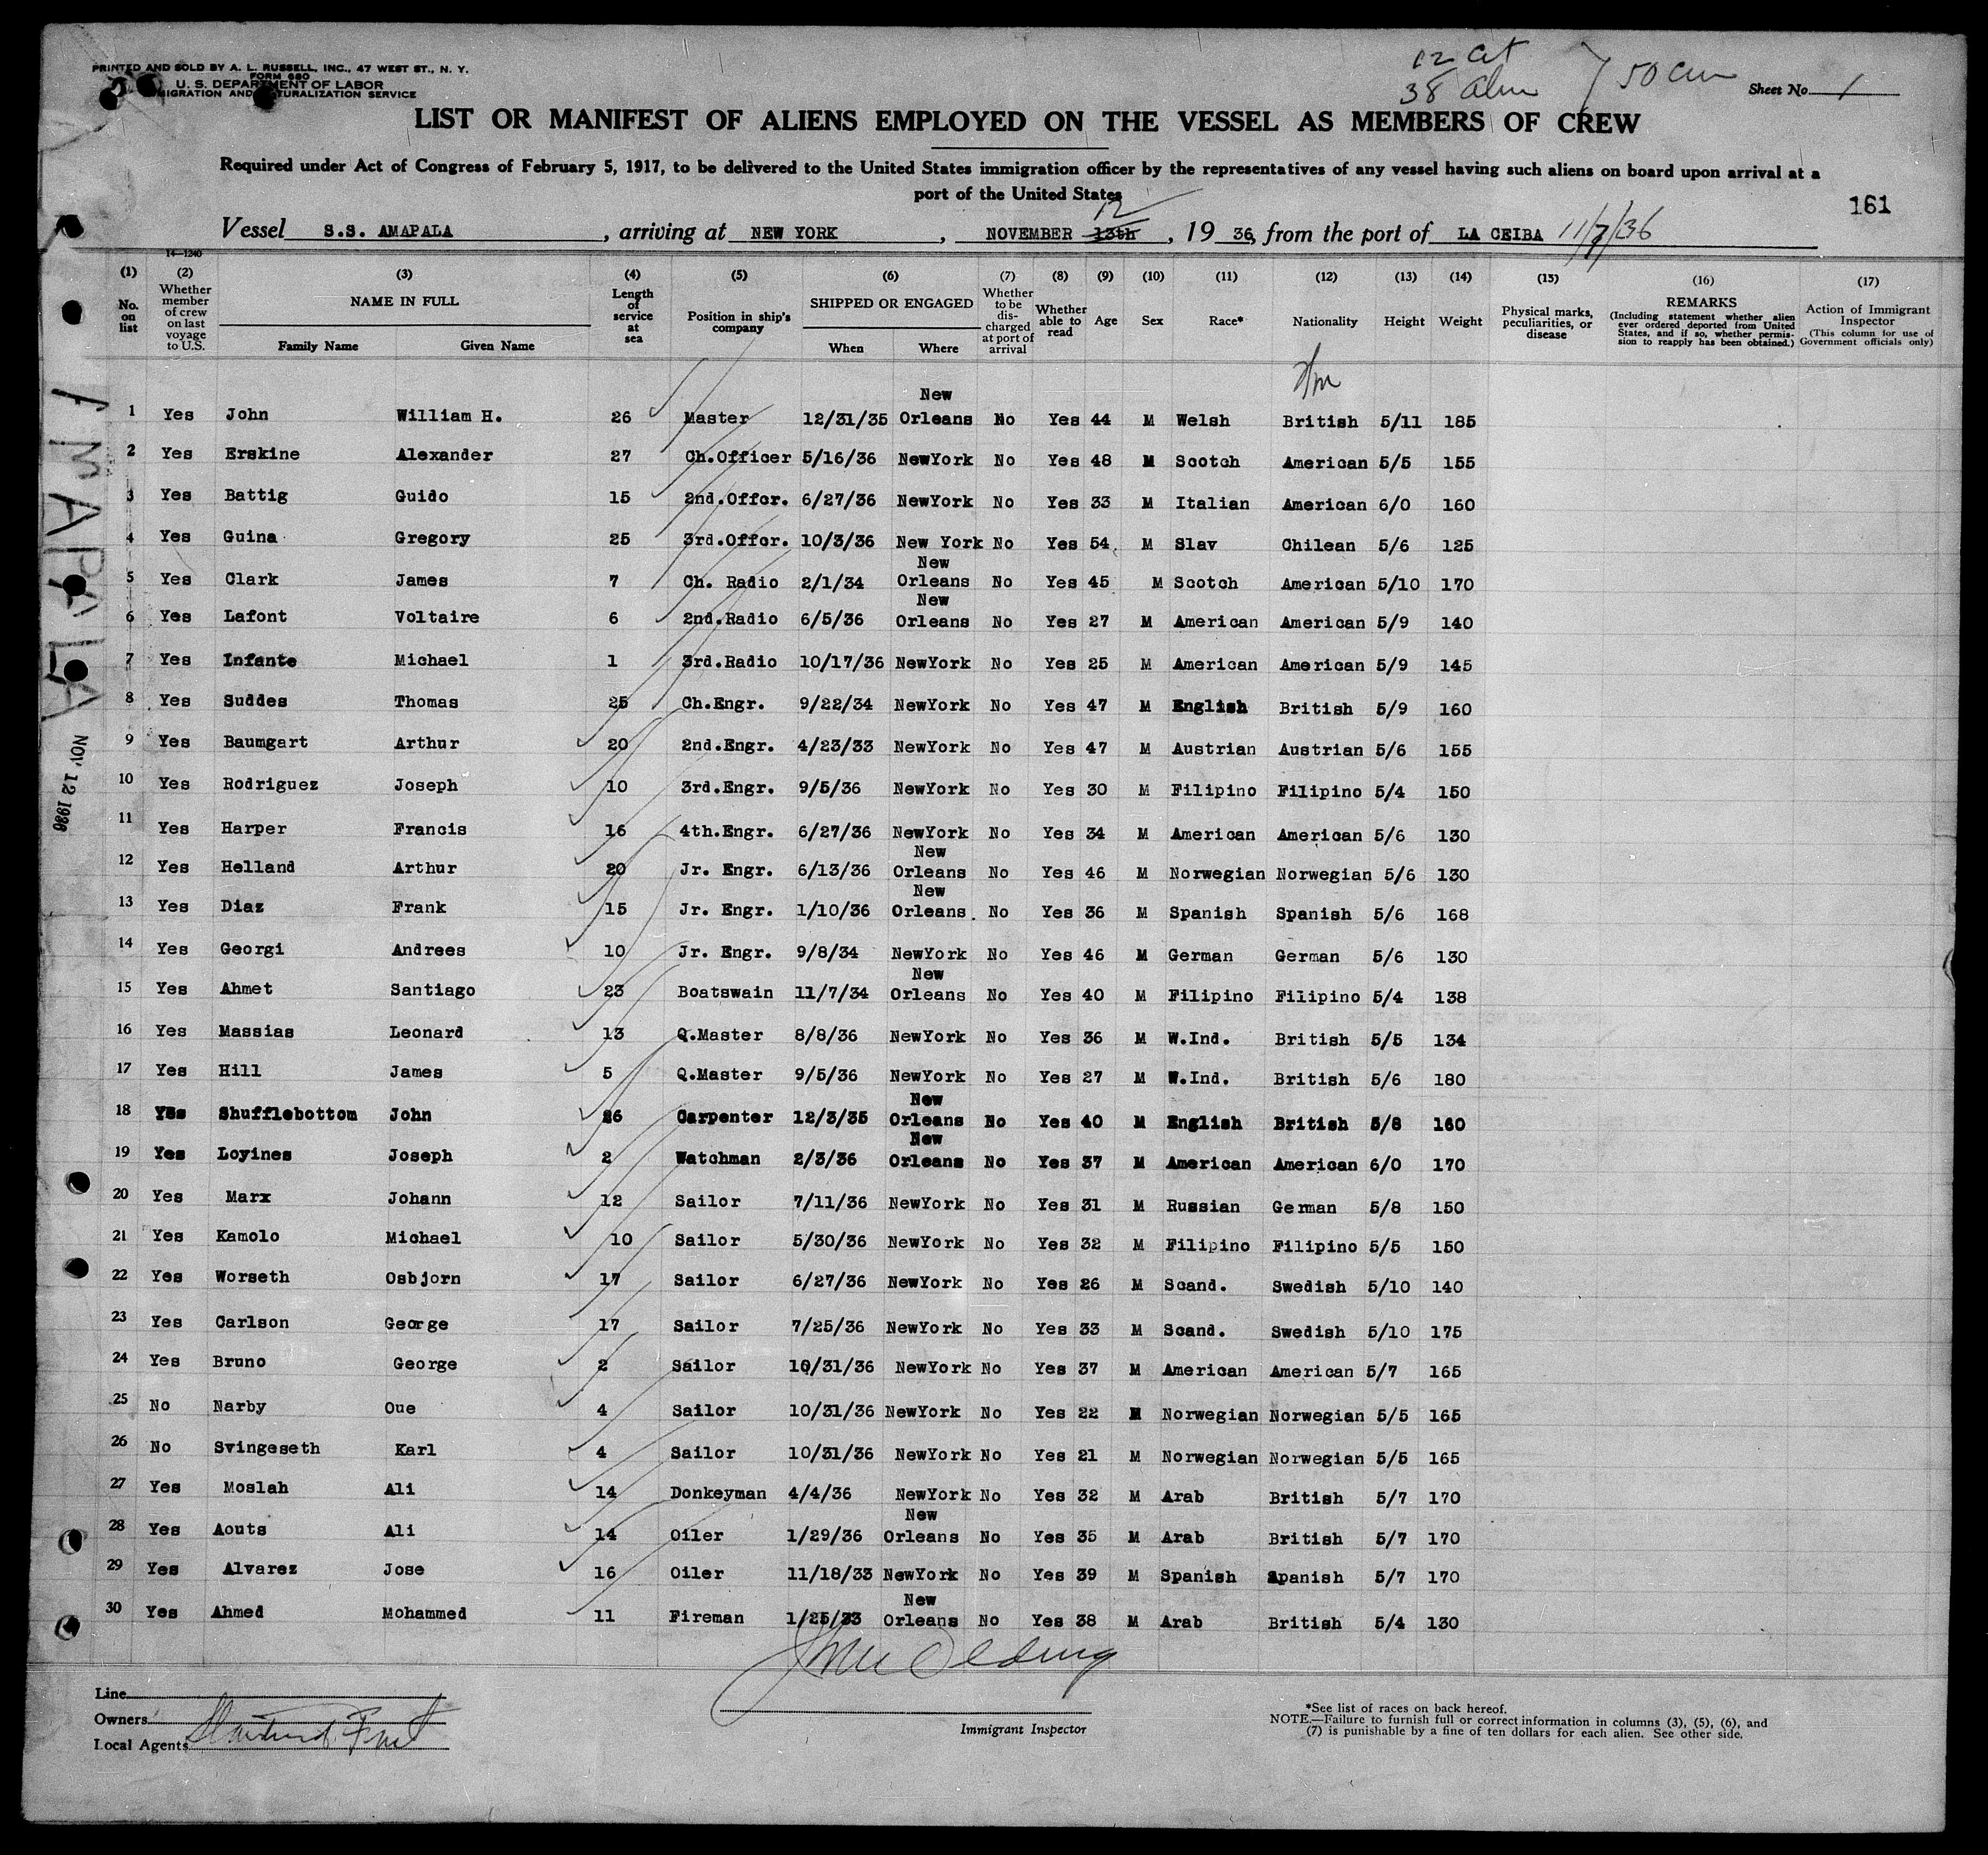 PRINTED AND SOLD BY A. L. RUSSELL, INC., 47 WEST ST., N. Y.
FORM 680
U. S. DEPARTMENT OF LABOR
IMMIGRATION AND NATURALIZATION SERVICE
12 cit
38 alm
50 cm
Sheet No. 1
LIST OR MANIFEST OF ALIENS EMPLOYED ON THE VESSEL AS MEMBERS OF CREW
Required under Act of Congress of February 5, 1917, to be delivered to the United States immigration officer by the representatives of any vessel having such aliens on board upon arrival at a
port of the United States
161
Vessel S.S. AMAPALA, arriving at NEW YORK, NOVEMBER 13th 12, 19 36, from the port of LA CEIBA 11/7/36
14—1240
(1) (2) (3) (4) (5) (6) (7) (8) (9) (10) (11) (12) (13) (14) (15) (16) (17)
No. on list
Whether member of crew on last voyage to U.S.
NAME IN FULL
Family Name Given Name
Length of service at sea
Position in ship's company
SHIPPED OR ENGAGED
When Where
Whether to be discharged at port of arrival
Whether able to read
Age
Sex
Race*
Nationality
Height
Weight
Physical marks, peculiarities, or disease
REMARKS
(Including statement whether alien ever ordered deported from United States, and if so, whether permission to reapply has been obtained.)
Action of Immigrant Inspector
(This column for use of Government officials only)
1 Yes John William H. 26 Master 12/31/35 New Orleans No Yes 44 M Welsh British 5/11 185
2 Yes Erskine Alexander 27 Ch.Officer 5/16/36 NewYork No Yes 48 M Scotch American 5/5 155
3 Yes Battig Guido 15 2nd.Offcr. 6/27/36 NewYork No Yes 33 M Italian American 6/0 160
4 Yes Guina Gregory 25 3rd.Offcr. 10/3/36 New York No Yes 54 M Slav Chilean 5/6 125
5 Yes Clark James 7 Ch. Radio 2/1/34 New Orleans No Yes 45 M Scotch American 5/10 170
6 Yes Lafont Voltaire 6 2nd.Radio 6/5/36 New Orleans No Yes 27 M American American 5/9 140
7 Yes Infante Michael 1 3rd.Radio 10/17/36 NewYork No Yes 25 M American American 5/9 145
8 Yes Suddes Thomas 25 Ch.Engr. 9/22/34 NewYork No Yes 47 M English British 5/9 160
9 Yes Baumgart Arthur 20 2nd.Engr. 4/23/33 NewYork No Yes 47 M Austrian Austrian 5/6 155
10 Yes Rodriguez Joseph 10 3rd.Engr. 9/5/36 NewYork No Yes 30 M Filipino Filipino 5/4 150
11 Yes Harper Francis 16 4th.Engr. 6/27/36 NewYork No Yes 34 M American American 5/6 130
12 Yes Helland Arthur 20 Jr. Engr. 6/13/36 New Orleans No Yes 46 M Norwegian Norwegian 5/6 130
13 Yes Diaz Frank 15 Jr. Engr. 1/10/36 New Orleans. No Yes 36 M Spanish Spanish 5/6 168
14 Yes Georgi Andrees 10 Jr. Engr. 9/8/34 NewYork No Yes 46 M German German 5/6 130
15 Yes Ahmet Santiago 23 Boatswain 11/7/34 New Orleans No Yes 40 M Filipino Filipino 5/4 138
16 Yes Massias Leonard 13 Q.Master 8/8/36 NewYork No Yes 36 M W.Ind. British 5/5 134
17 Yes Hill James 5 Q.Master 9/5/36 NewYork No Yes 27 M W.Ind. British 5/6 180
18 Yes Shufflebottom John 26 Carpenter 12/3/35 New Orleans No Yes 40 M English British 5/8 160
19 Yes Loyines Joseph 2 Watchman 2/3/36 New Orleans No Yes 37 M American American 6/0 170
20 Yes Marx Johann 12 Sailor 7/11/36 NewYork No Yes 31 M Russian German 5/8 150
21 Yes Kamolo Michael 10 Sailor 5/30/36 NewYork No Yes 32 M Filipino Filipino 5/5 150
22 Yes Worseth Osbjorn 17 Sailor 6/27/36 NewYork No Yes 26 M Scand. Swedish 5/10 140
23 Yes Carlson George 17 Sailor 7/25/36 NewYork No Yes 33 M Scand. Swedish 5/10 175
24 Yes Bruno George 2 Sailor 10/31/36 NewYork No Yes 37 M American American 5/7 165
25 No Narby Oue 4 Sailor 10/31/36 NewYork No Yes 22 M Norwegian Norwegian 5/5 165
26 No Svingeseth Karl 4 Sailor 10/31/36 NewYork No Yes 21 M Norwegian Norwegian 5/5 165
27 Yes Moslah Ali 14 Donkeyman 4/4/36 NewYork No Yes 32 M Arab British 5/7 170
28 Yes Aouts Ali 14 Oiler 1/29/36 New Orleans No Yes 35 M Arab British 5/7 170
29 Yes Alvarez Jose 16 Oiler 11/18/33 NewYork No Yes 39 M Spanish Spanish 5/7 170
30 Yes Ahmed Mohammed 11 Fireman 1/25/33 New Orleans No Yes 38 M Arab British 5/4 130
AMAPALA
NOV 12 1936
Line
Owners
Local Agents Standard Fruit
Immigrant Inspector
*See list of races on back hereof.
NOTE.—Failure to furnish full or correct information in columns (3), (5), (6), and
(7) is punishable by a fine of ten dollars for each alien. See other side.